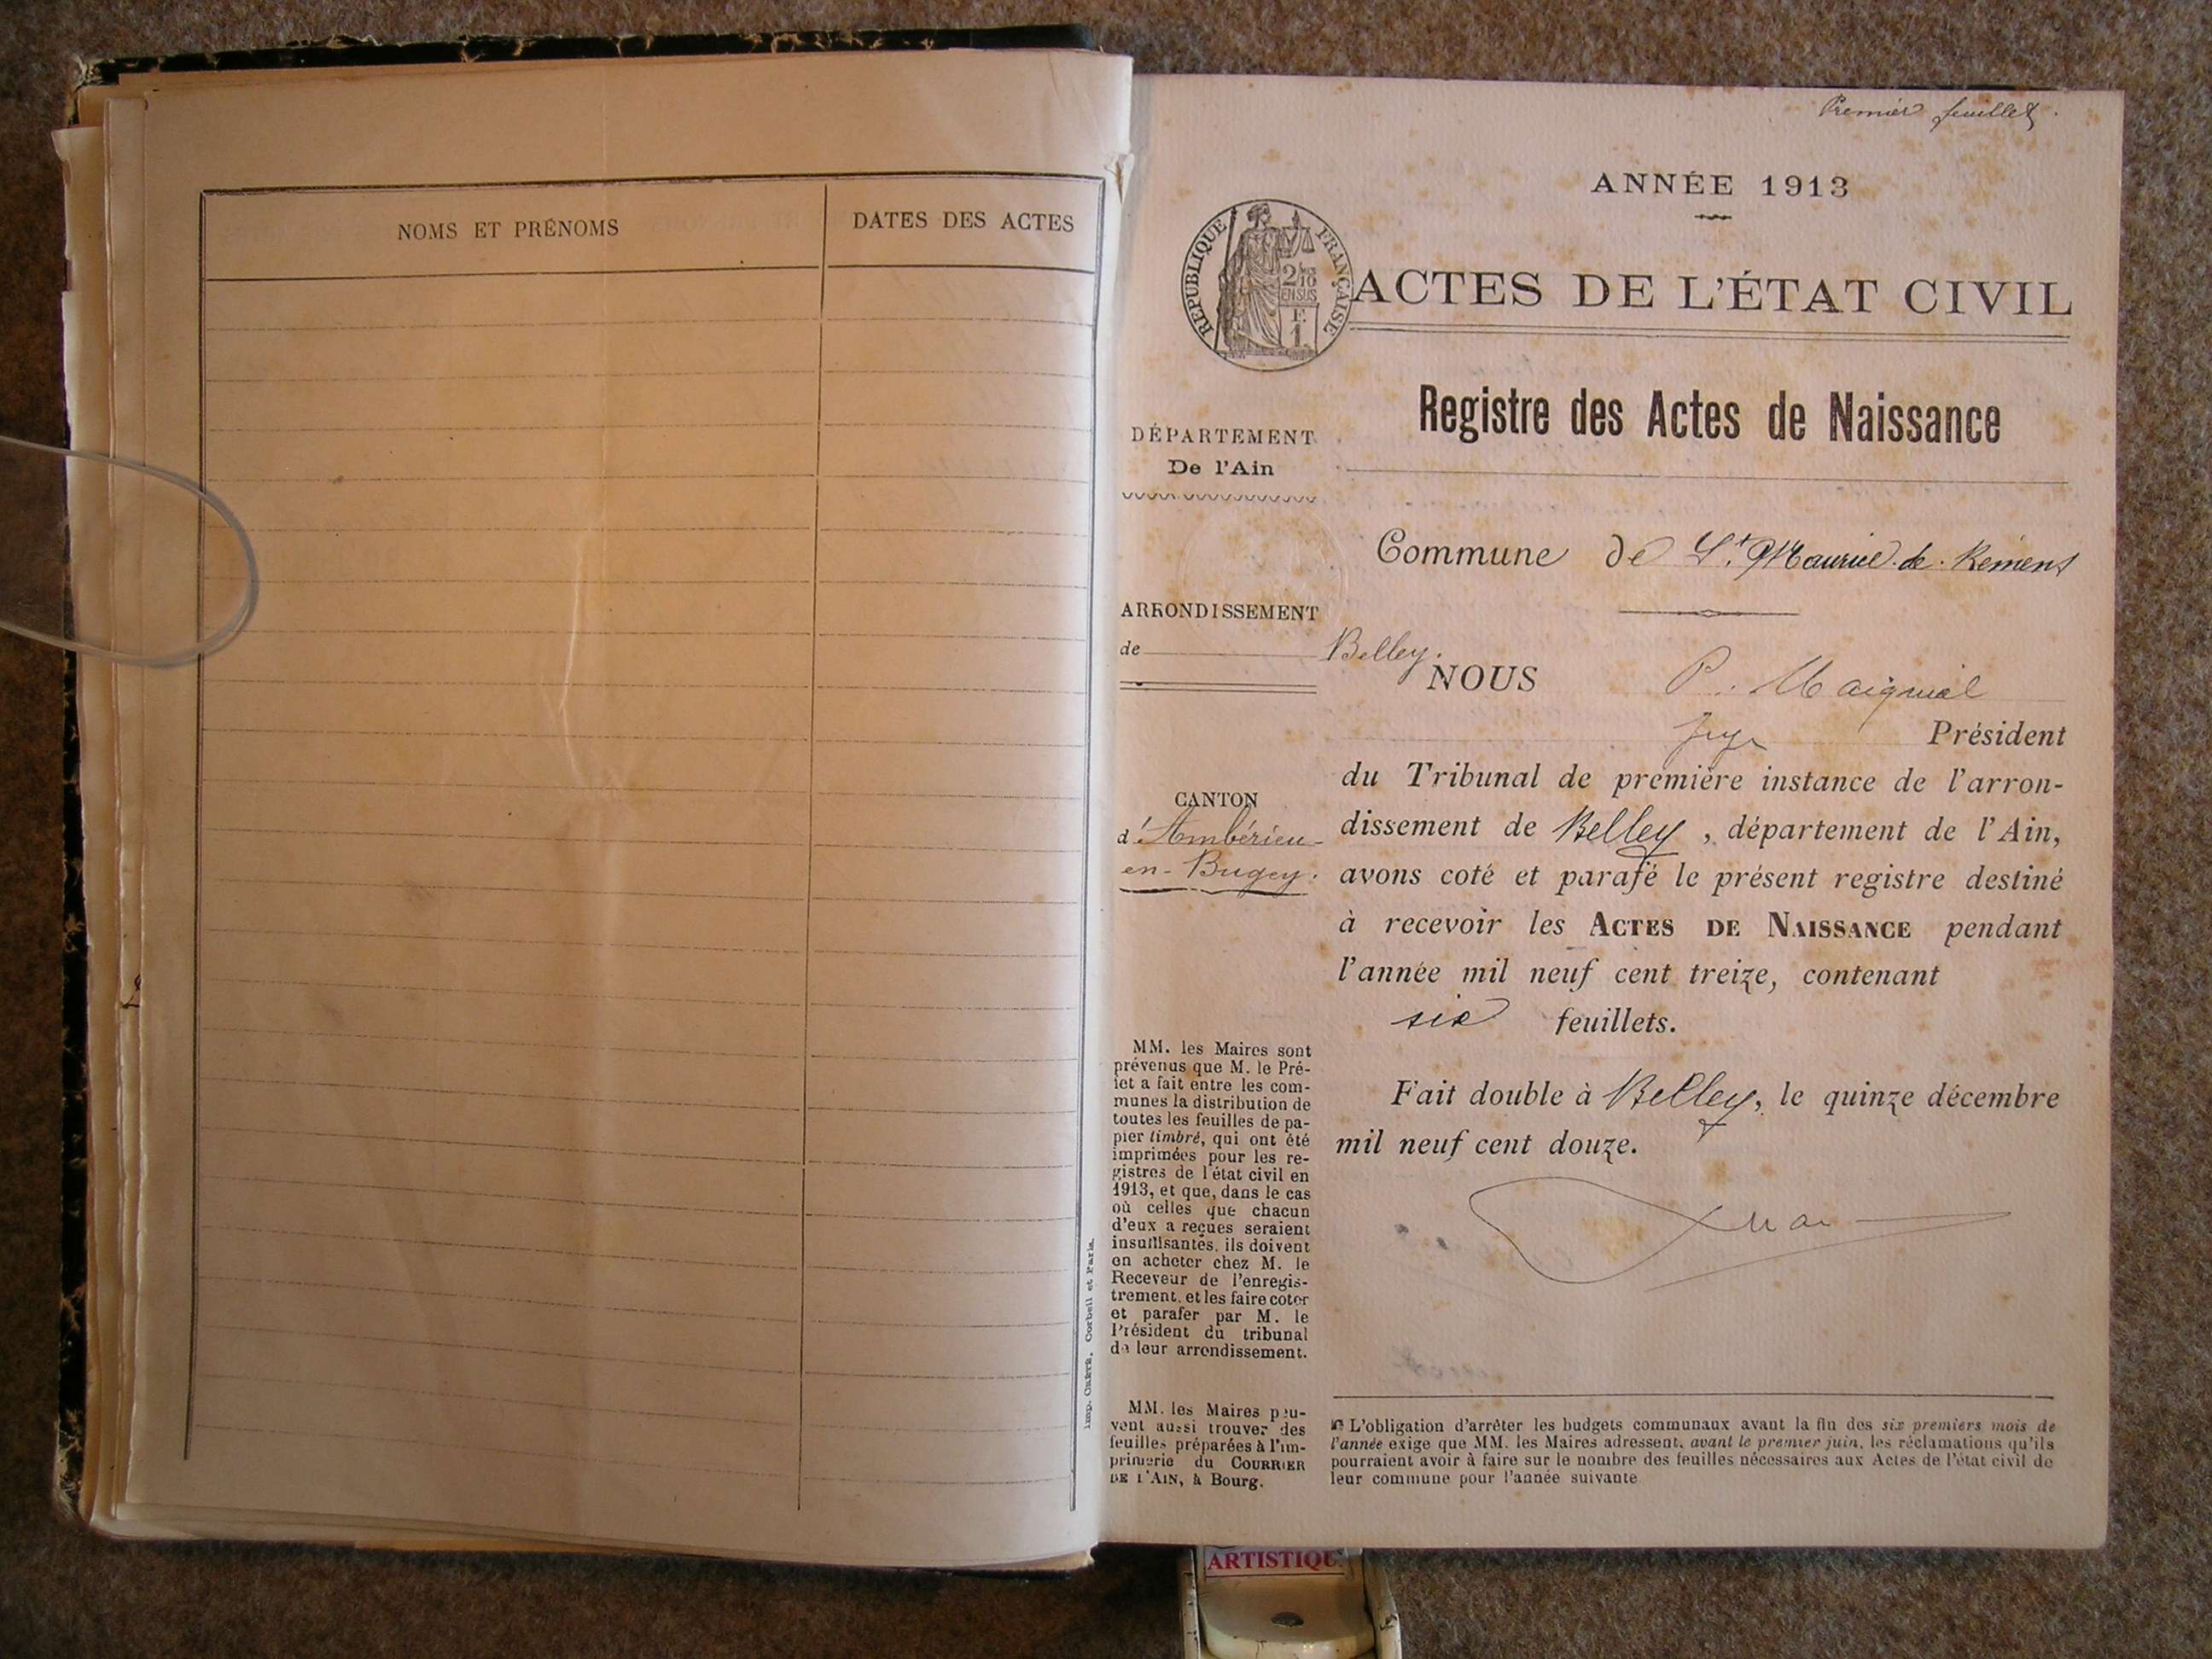 NOMS ET PRÉNOMS
DATES DES ACTES
Imp. CRÉTÉ. Corbeil et Paris.
Premier feuillet.
ANNÉE 1913
RÉPUBLIQUE FRANÇAISE
2/10
EN SUS
F.
1
ACTES DE L'ÉTAT CIVIL
Registre des Actes de Naissance
DÉPARTEMENT
De l'Ain
Commune de St. Maurice. de. Rémens
ARRONDISSEMENT
de Belley.
NOUS P. Maignial
juge Président
du Tribunal de première instance de l'arron-
dissement de Belley, département de l'Ain,
avons coté et parafé le présent registre destiné
à recevoir les ACTES DE NAISSANCE pendant
l'année mil neuf cent treize, contenant
six feuillets.
Fait double à Belley, le quinze décembre
mil neuf cent douze.
CANTON
d'Ambérieu-
en-Bugey.
MM. les Maires sont
prévenus que M. le Pré-
fet a fait entre les com-
munes la distribution de
toutes les feuilles de pa-
pier timbré, qui ont été
imprimées pour les re-
gistres de l'état civil en
1913, et que, dans le cas
où celles que chacun
d'eux a reçues seraient
insuffisantes, ils doivent
en acheter chez M. le
Receveur de l'enregis-
trement, et les faire coter
et parafer par M. le
Président du tribunal
de leur arrondissement.
MM. les Maires peu-
vent aussi trouver des
feuilles préparées à l'im-
primerie du COURRIER
DE L'AIN, à Bourg.
☞ L'obligation d'arrêter les budgets communaux avant la fin des six premiers mois de
l'année exige que MM. les Maires adressent, avant le premier juin, les réclamations qu'ils
pourraient avoir à faire sur le nombre des feuilles nécessaires aux Actes de l'état civil de
leur commune pour l'année suivante
ARTISTIQU